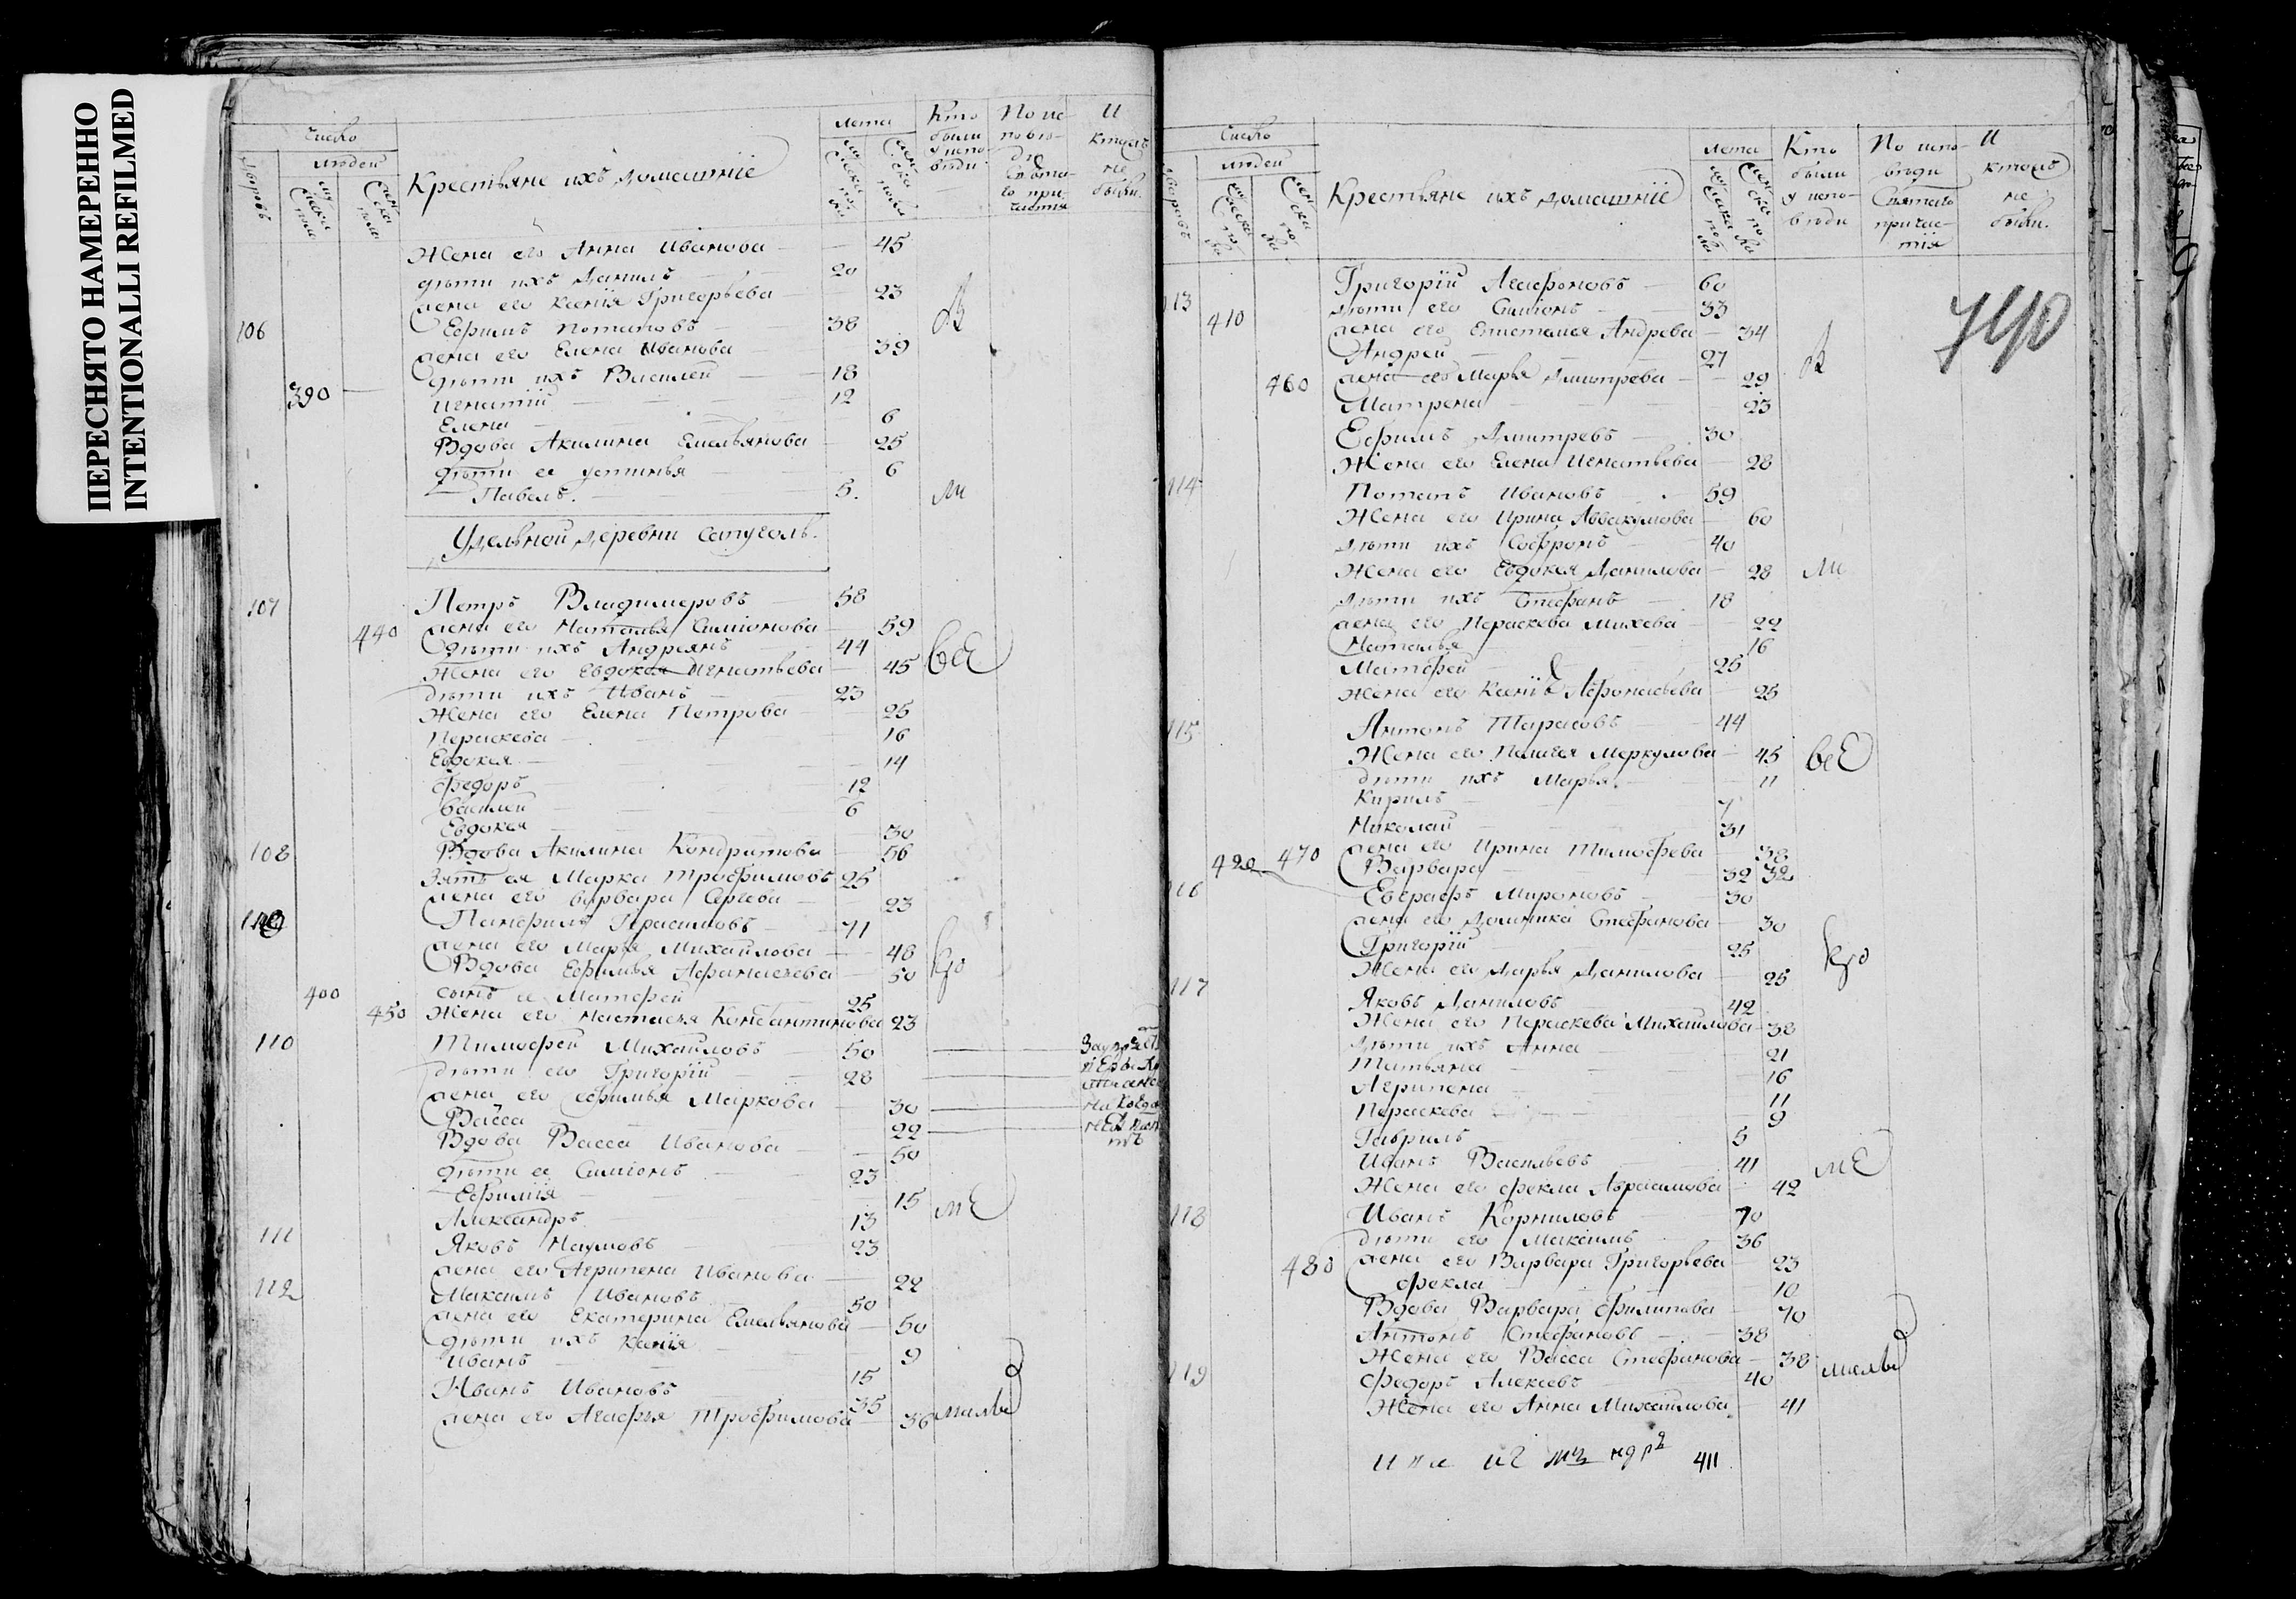 ПЕРЕСНЯТО НАМЕРЕННО
INTENTIONALLI REFILMED
Число
людей
Дворовъ
Крестьяне ихъ домашнiе
Лета
Кто были у исповѣди
По исповѣди Святаго причастия
И ктожъ не были.
Жена его Анна Иванова 45
дѣти ихъ Данилъ 20
жена его Ксенiя Григорьева 23
106 Ефимъ Потаповъ 38
жена его Елена Иванова 39
дѣти ихъ Василей 18
390 Игнатiй 12
Елена 6
Вдова Акилина Емельянова 25
дѣти ее Устинья 6
Павелъ. 5.
Удельной деревни Сапуголь.
107 Петръ Владимеровъ 58
440 жена его Наталья Симiонова 59
дѣти ихъ Андреянъ 44
Жена его Евдокея Игнатьева 45 всЕ
дѣти ихъ Иванъ 23
Жена его Елена Петрова 25
Пераскева 16
Евдокея 14
Федоръ 12
Василей 6
Евдокея 30
108 Вдова Акилина Кондратова 56
Зять ея Марка Трофимовъ 25
жена его Варвара Сергева 23
Панфилъ Герасимовъ 71
жена его Марья Михайлова 48
Вдова Ефимья Афанасьева 50
400 сынъ ее Матфей 25
450 Жена его Настасея Константинова 23
110 Тимофей Михайловъ 50
дѣти его Григорiй 28
жена его Ефимья Маркова 30
Васса 22
Вдова Васса Иванова 50
дѣти ее Симiонъ 23
Ефимiя 15
Александръ 13
111 Яковъ Наумовъ 23
жена его Агрипена Иванова 22
112 Максимъ Ивановъ 50
жена его Екатерина Емельянова 50
дѣти ихъ Ксенiя 9
Иванъ 15
Иванъ Ивановъ 35
жена его Агафья Трофимова 36
Число
людей
Дворовъ
Крестьяне ихъ домашнiе
Лета
Кто были у исповѣди
По исповѣди Святаго причастiя
И ктожъ не были.
740
113 Григорiй Агафоновъ 60
410 дѣти его Симiонъ 33
жена его Епистамея Андрева 34
Андрей 27
460 жена его Марья Дмитрева 29
Матрена 23
Ефимъ Дмитревъ 30
Жена его Елена Игнатьева 28
114 Потапъ Ивановъ 59
Жена его Ирина Аввакумова 60
дѣти ихъ Софронъ 40
Жена его Евдокея Данилова 28
дѣти ихъ Стефанъ 18
жена его Пераскева Михева 22
Наталья 16
Матфей 25
Жена его Ксенiя Афонасьева 25
115 Антонъ Тарасовъ 44
Жена его Пелагея Меркулова 45 всЕ
дѣти ихъ Марья. 11
Кирилъ 7
Николай 31
420 470 жена его Ирина Тимофева 38
Варвара 32 32
116 Евграфъ Мироновъ 30
жена его Домника Стефанова 30
Григорiй 25
Жена его Дарья Данилова 25
117 Яковъ Даниловъ 42
Жена его Пераскева Михаилова 38
дѣти ихъ Анна 21
Татьяна 16
Агрипена 11
Пераскева 9
Гаврилъ 5
Иванъ Васильевъ 41
Жена его Фекла Абрасимова 42
118 Иванъ Корниловъ 70
дѣти его Максимъ 36
480 жена его Варвара Григорьева 23
Фекла 10
Вдова Варвара Филипова 70
Антонъ Стефановъ 38
Жена его Васса Стефанова 38
119 Федоръ Алексевъ 40
Жена его Анна Михайлова 41
411